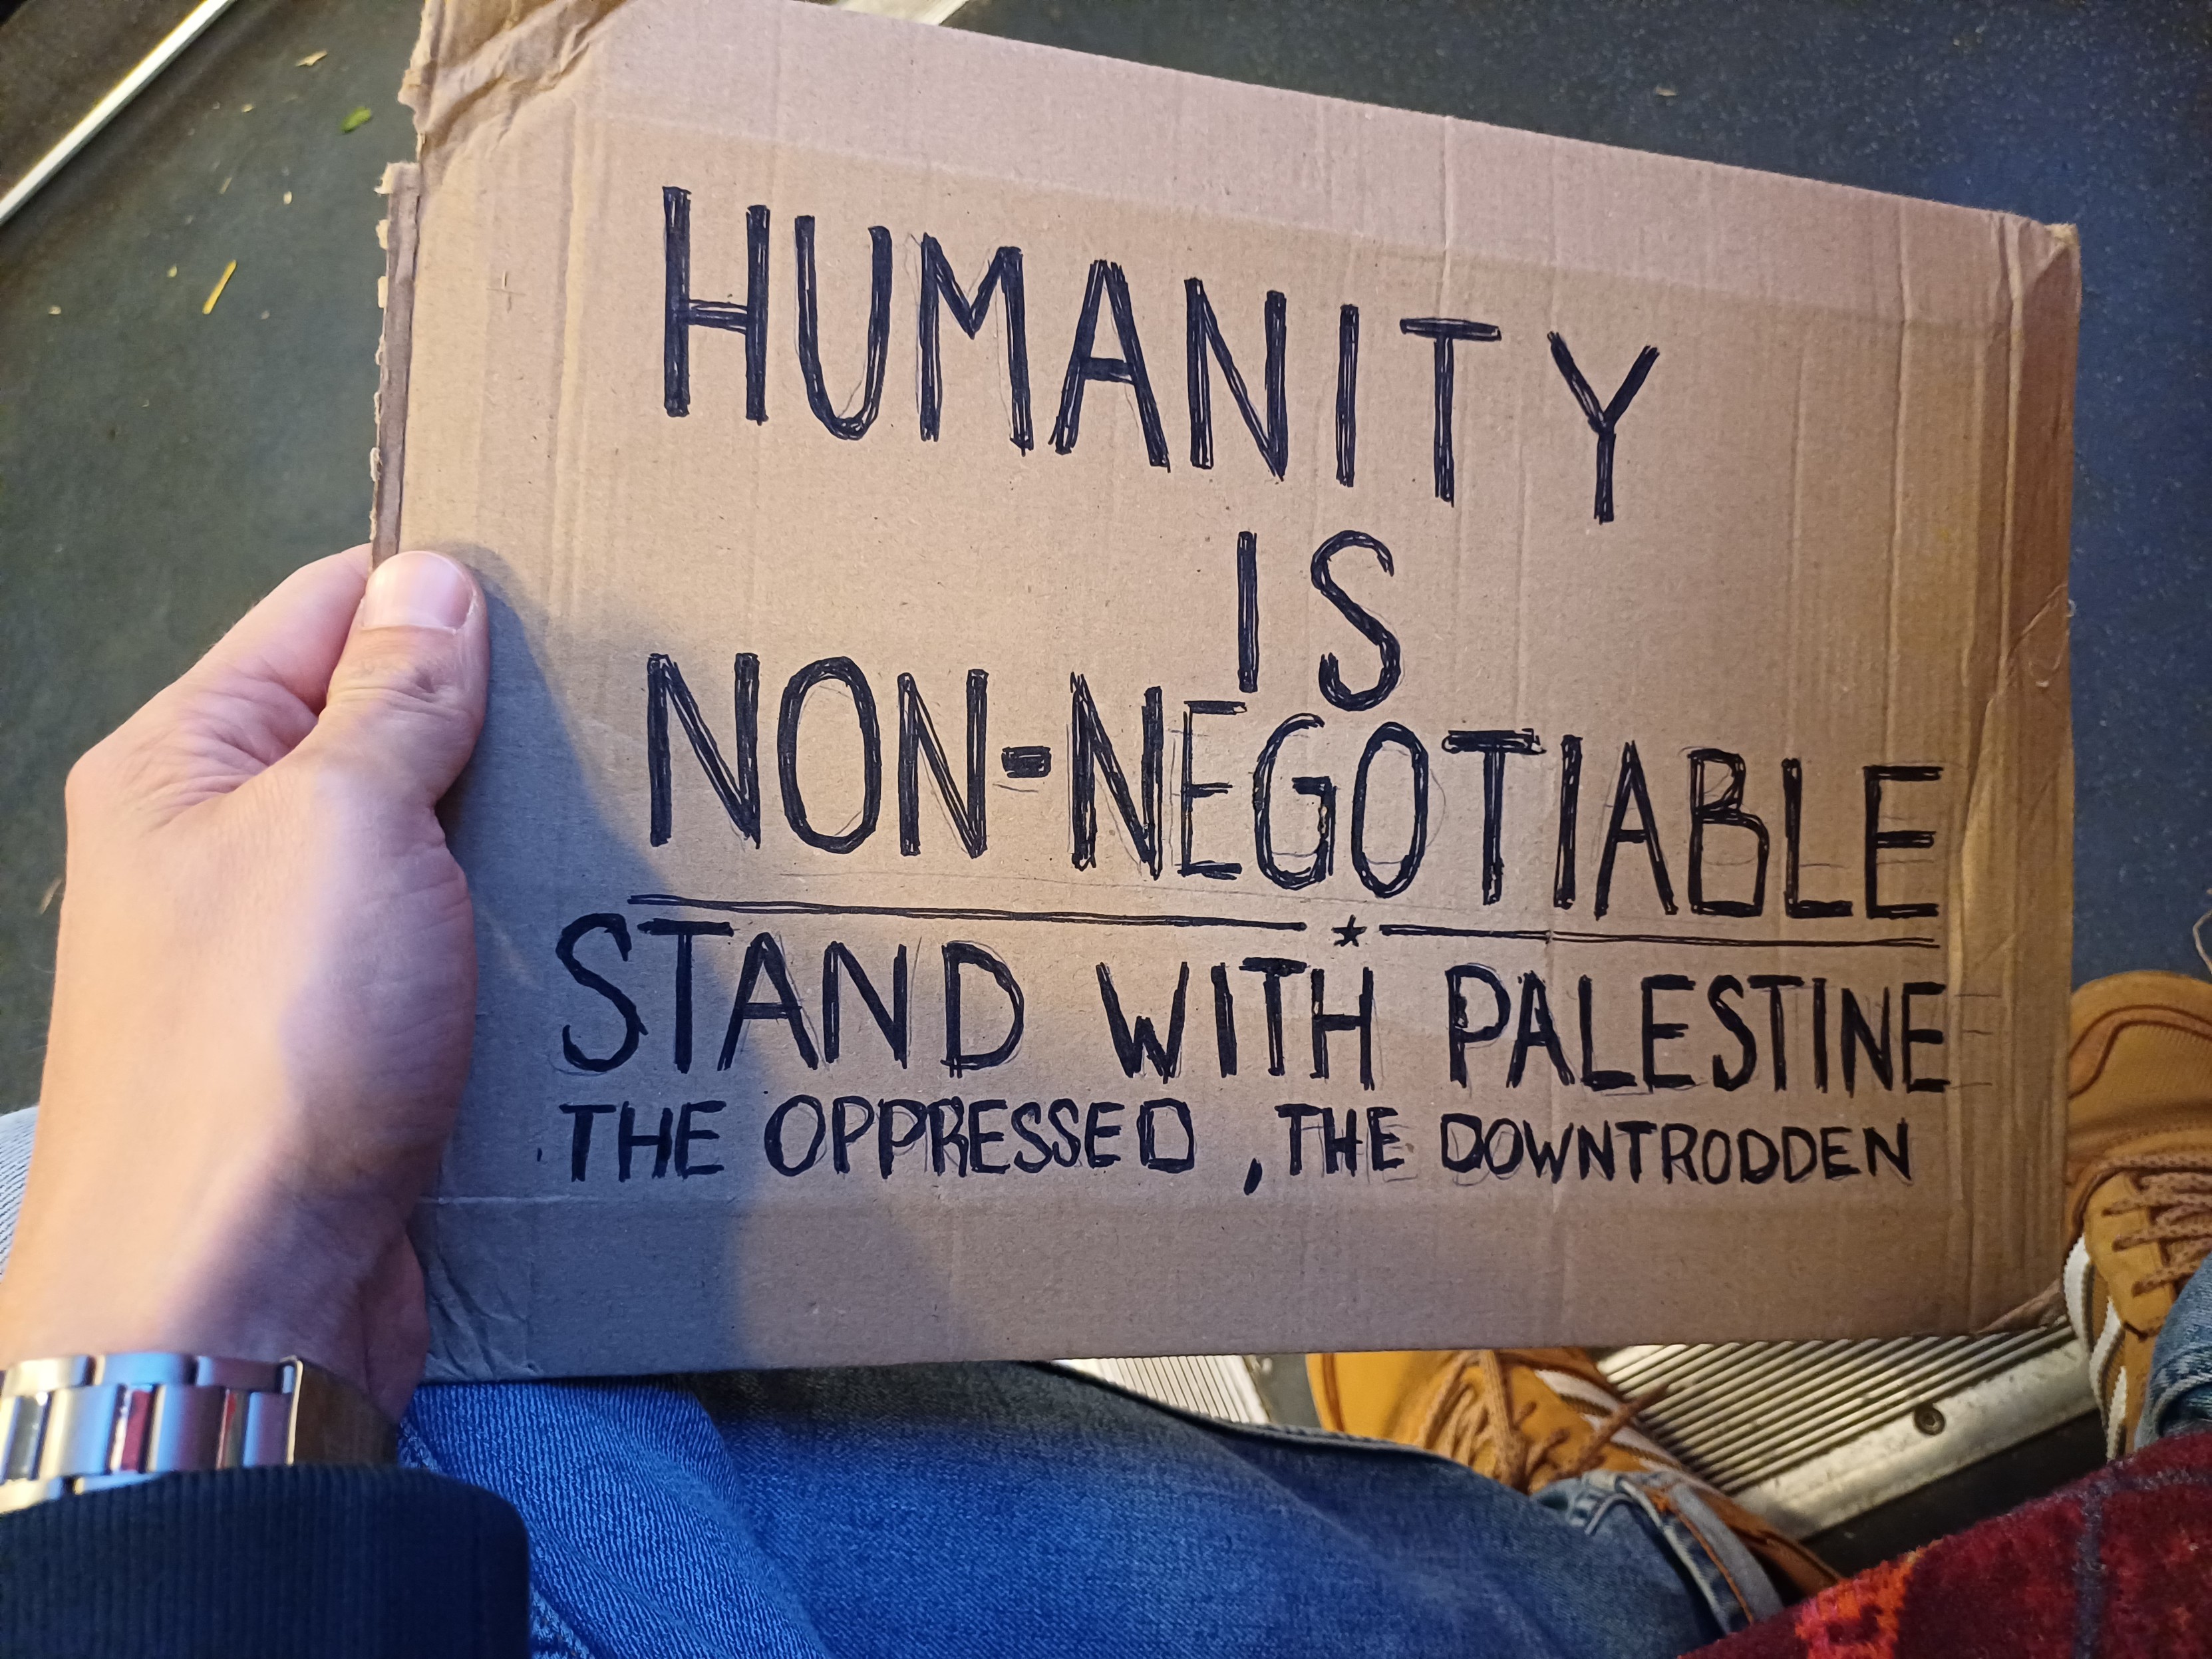 HUMANITY
IS
NON-NEGOTIABLE
STAND WITH PALESTINE
THE OPPRESSED , THE DOWNTRODDEN